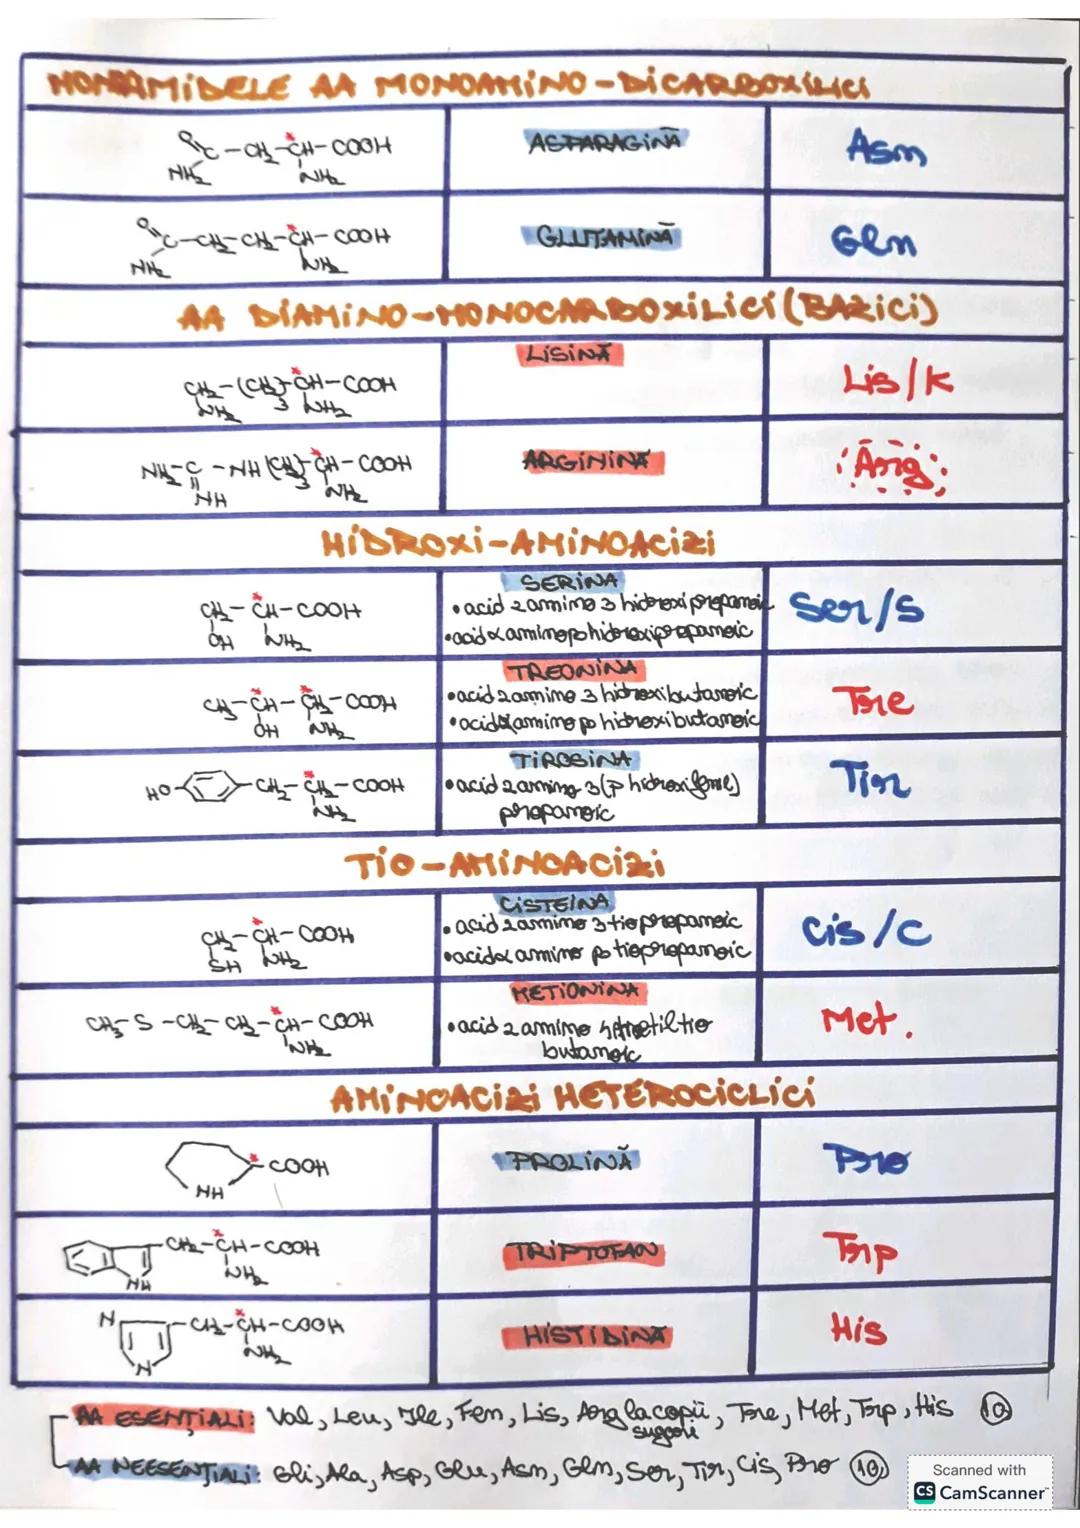 MONOAMIDELE AA MONOAMINO-DICARBOXILICI
O
C-CH2-CH-COOH
NH2 NH2
ASPARAGINĂ
Asn
O
C-CH2-CH2-CH-COOH
NH2 NH2
GLUTAMINĂ
Gln
AA DIAMINO-MONOCARBOXILICI (BAZICI)
CH2-(CH2)3-CH-COOH
NH2 NH2
LISINĂ
Lis/K
NH2-C-NH-(CH2)3-CH-COOH
NH NH2
ARGININĂ
Arg
HIDROXI-AMINOACIZI
CH2-CH-COOH
OH NH2
SERINA
• acid 2 amino 3 hidroxipropanoic
• acid α amino β hidroxipropanoic
Ser/S
CH3-CH-CH-COOH
OH NH2
TREONINA
• acid 2 amino 3 hidroxibutanoic
• acid α amino β hidroxibutanoic
Tre
HO CH2-CH-COOH
NH2
TIROSINA
• acid 2 amino 3 (p hidroxifenil)
propanoic
Tir
TIO-AMINOACIZI
CH2-CH-COOH
SH NH2
CISTEINA
• acid 2 amino 3 tiopropanoic
• acid α amino β tiopropanoic
Cis/C
CH3-S-CH2-CH2-CH-COOH
NH2
METIONINA
• acid 2 amino 4 metiltio
butanoic
Met.
AMINOACIZI HETEROCICLICI
COOH
NH
PROLINĂ
Pro
CH2-CH-COOH
NH NH2
TRIPTOFAN
Trp
N CH2-CH-COOH
N NH2
HISTIDINĂ
His
AA ESENȚIALI: Val, Leu, Ile, Fen, Lis, Arg la copii, Tre, Met, Trp, His 10
sugari
AA NEESENȚIALI: Gli, Ala, Asp, Glu, Asn, Gln, Ser, Tir, Cis, Pro 10
Scanned with
CS CamScanner